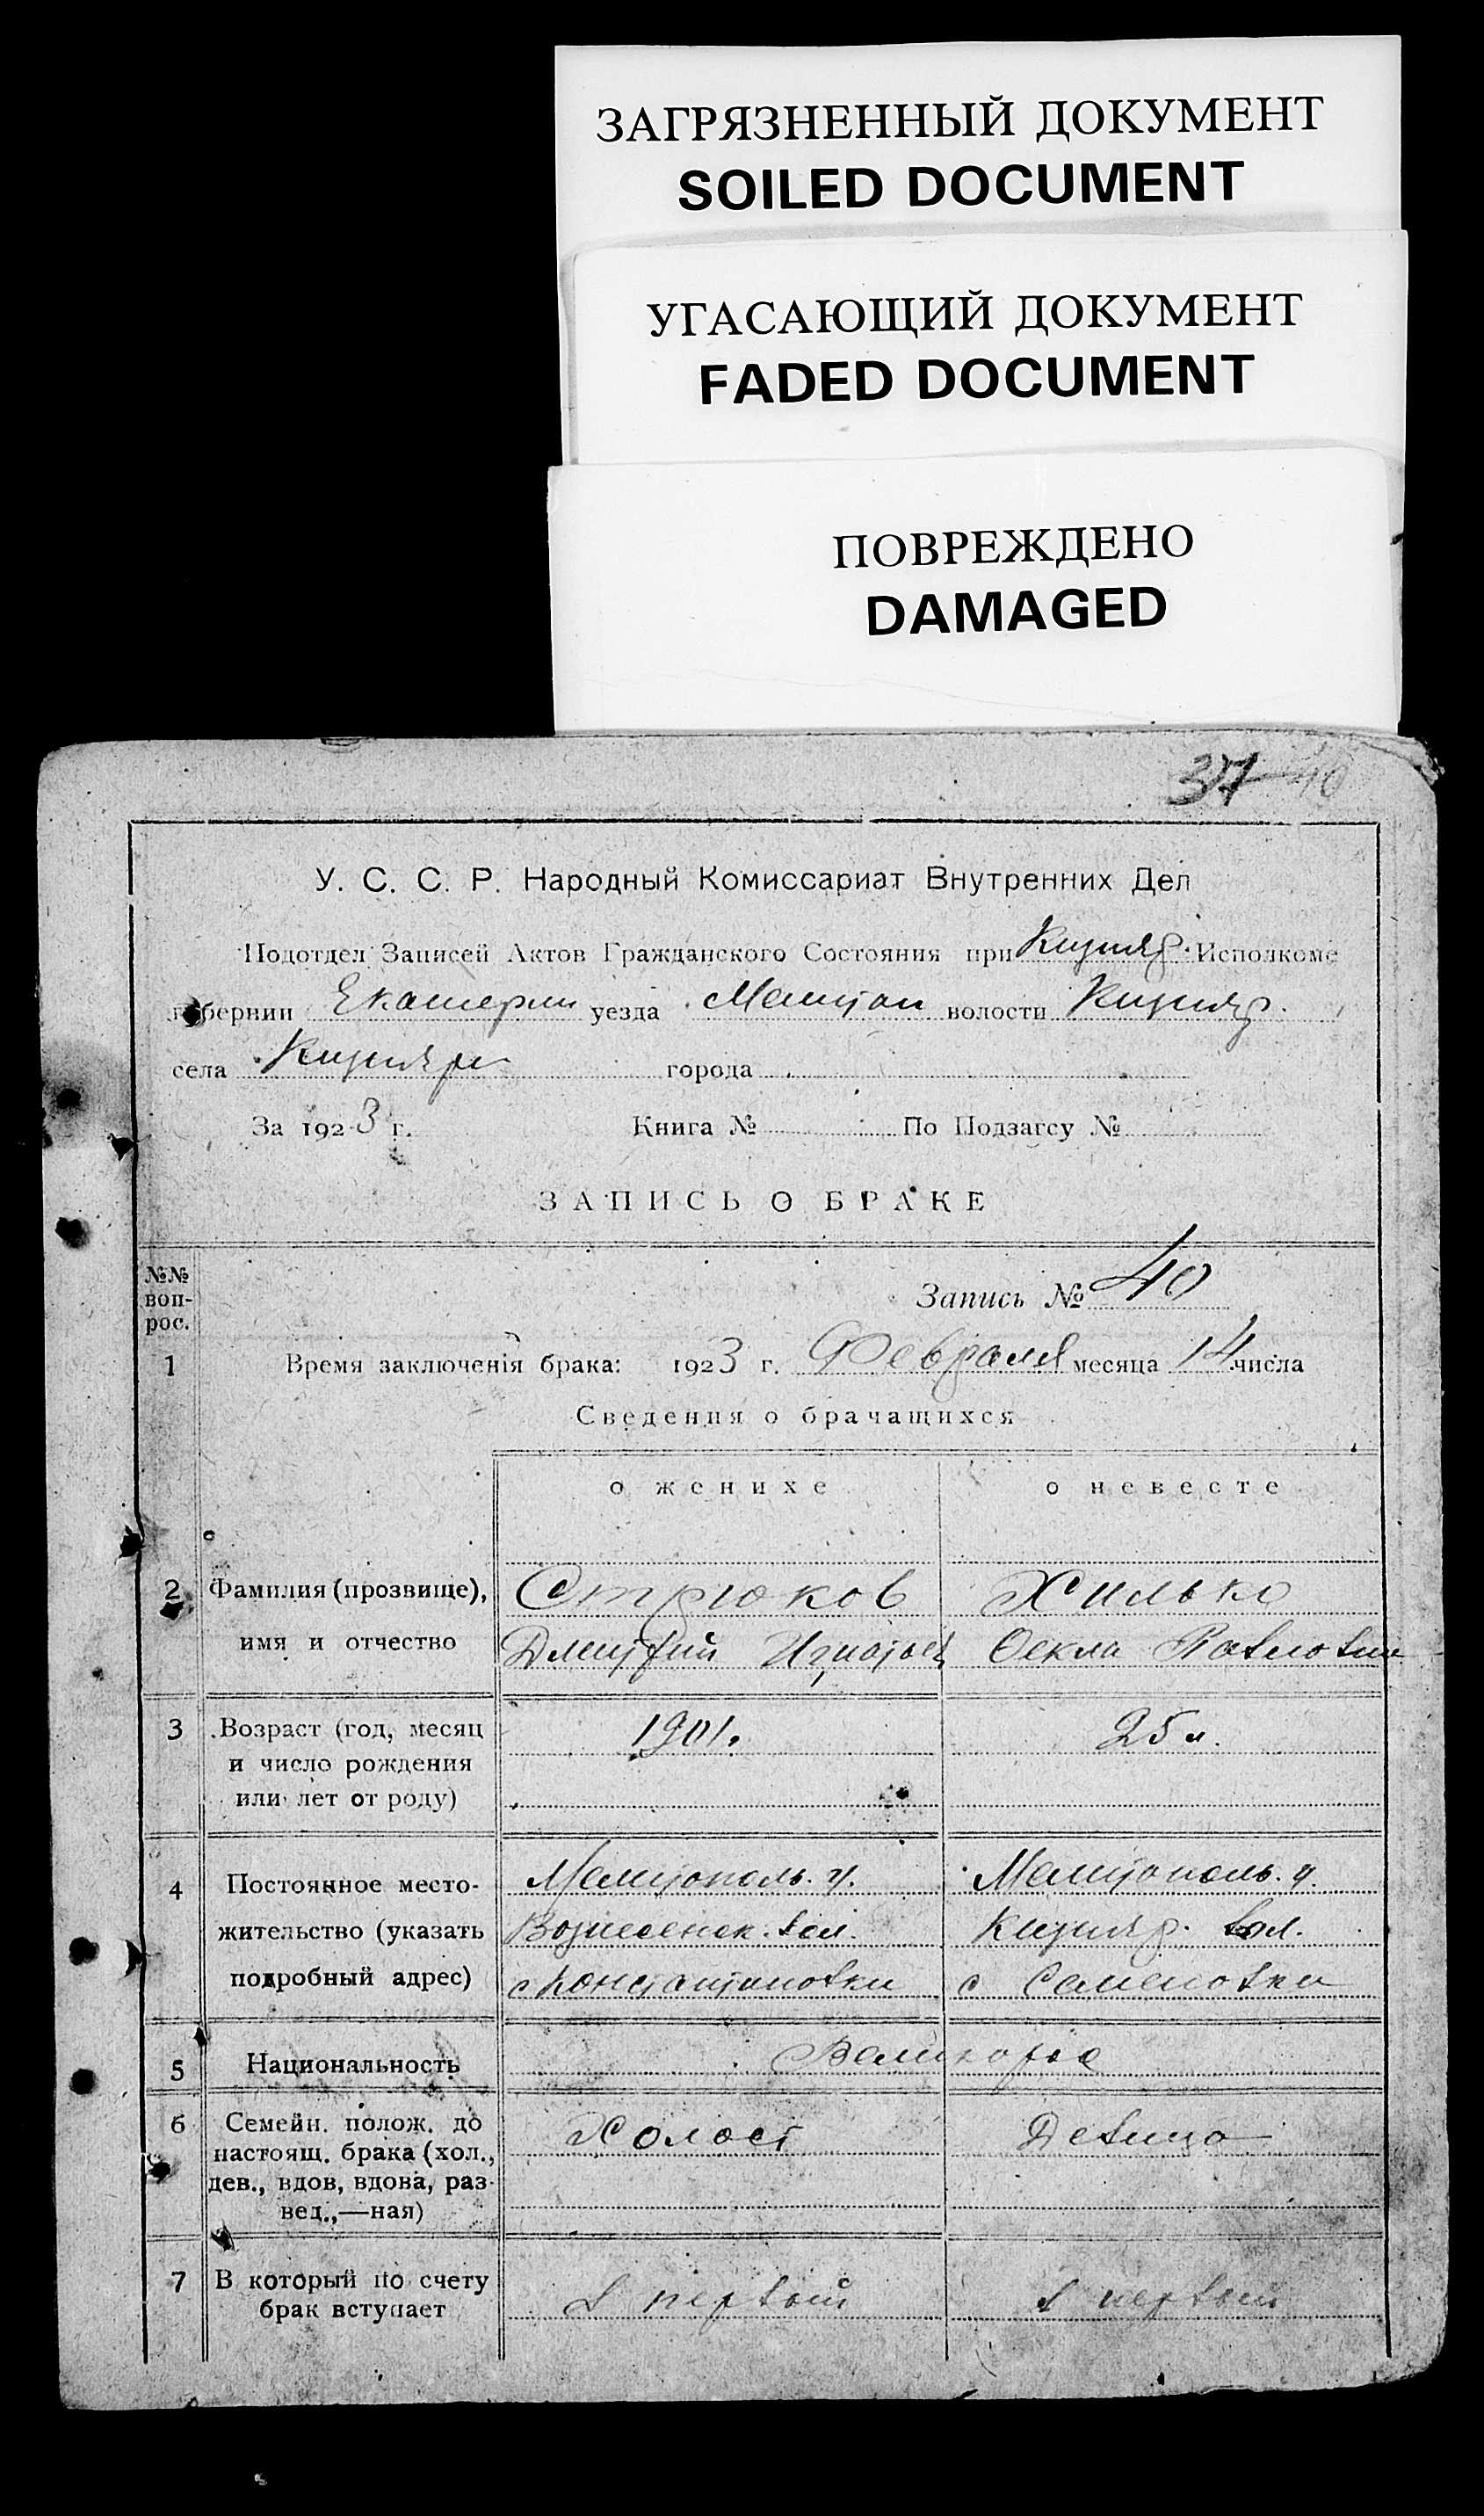 ЗАГРЯЗНЕННЫЙ ДОКУМЕНТ
SOILED DOCUMENT
УГАСАЮЩИЙ ДОКУМЕНТ
FADED DOCUMENT
ПОВРЕЖДЕНО
DAMAGED
37 40
У. С. С. Р. Народный Комиссариат Внутренних Дел
Подотдел Записей Актов Гражданского Состояния при Кизияр. Исполкоме
губернии Екатерин уезда Мелитоп волости Кизияр.
села Кизияри города
За 1923 г. Книга № По Подзагсу №
ЗАПИСЬ О БРАКЕ
№№ воп-рос.
Запись № 40
1 Время заключенія брака: 1923 г. Февраля месяца 14 числа
Сведения о брачащихся
о женихе о невесте
2 Фамилия (прозвище), Стрюков Хилько
имя и отчество Дмитрий Игнатьев Фекла Павловна
3 Возраст (год, месяц 1901. 25 л.
и число рождения
или лет от роду)
4 Постоянное место- Мелитополь. у. Мелитополь. у.
жительство (указать Вознесенск. вол. Кизияр. вол.
подробный адрес) с Константиновки с Семеновки
5 Национальность
6 Семейн. полож. до Холост Девица
настоящ. брака (хол.,
дев., вдов, вдова, раз-
вед.,—ная)
7 В который по счету в первый в первый
брак вступает